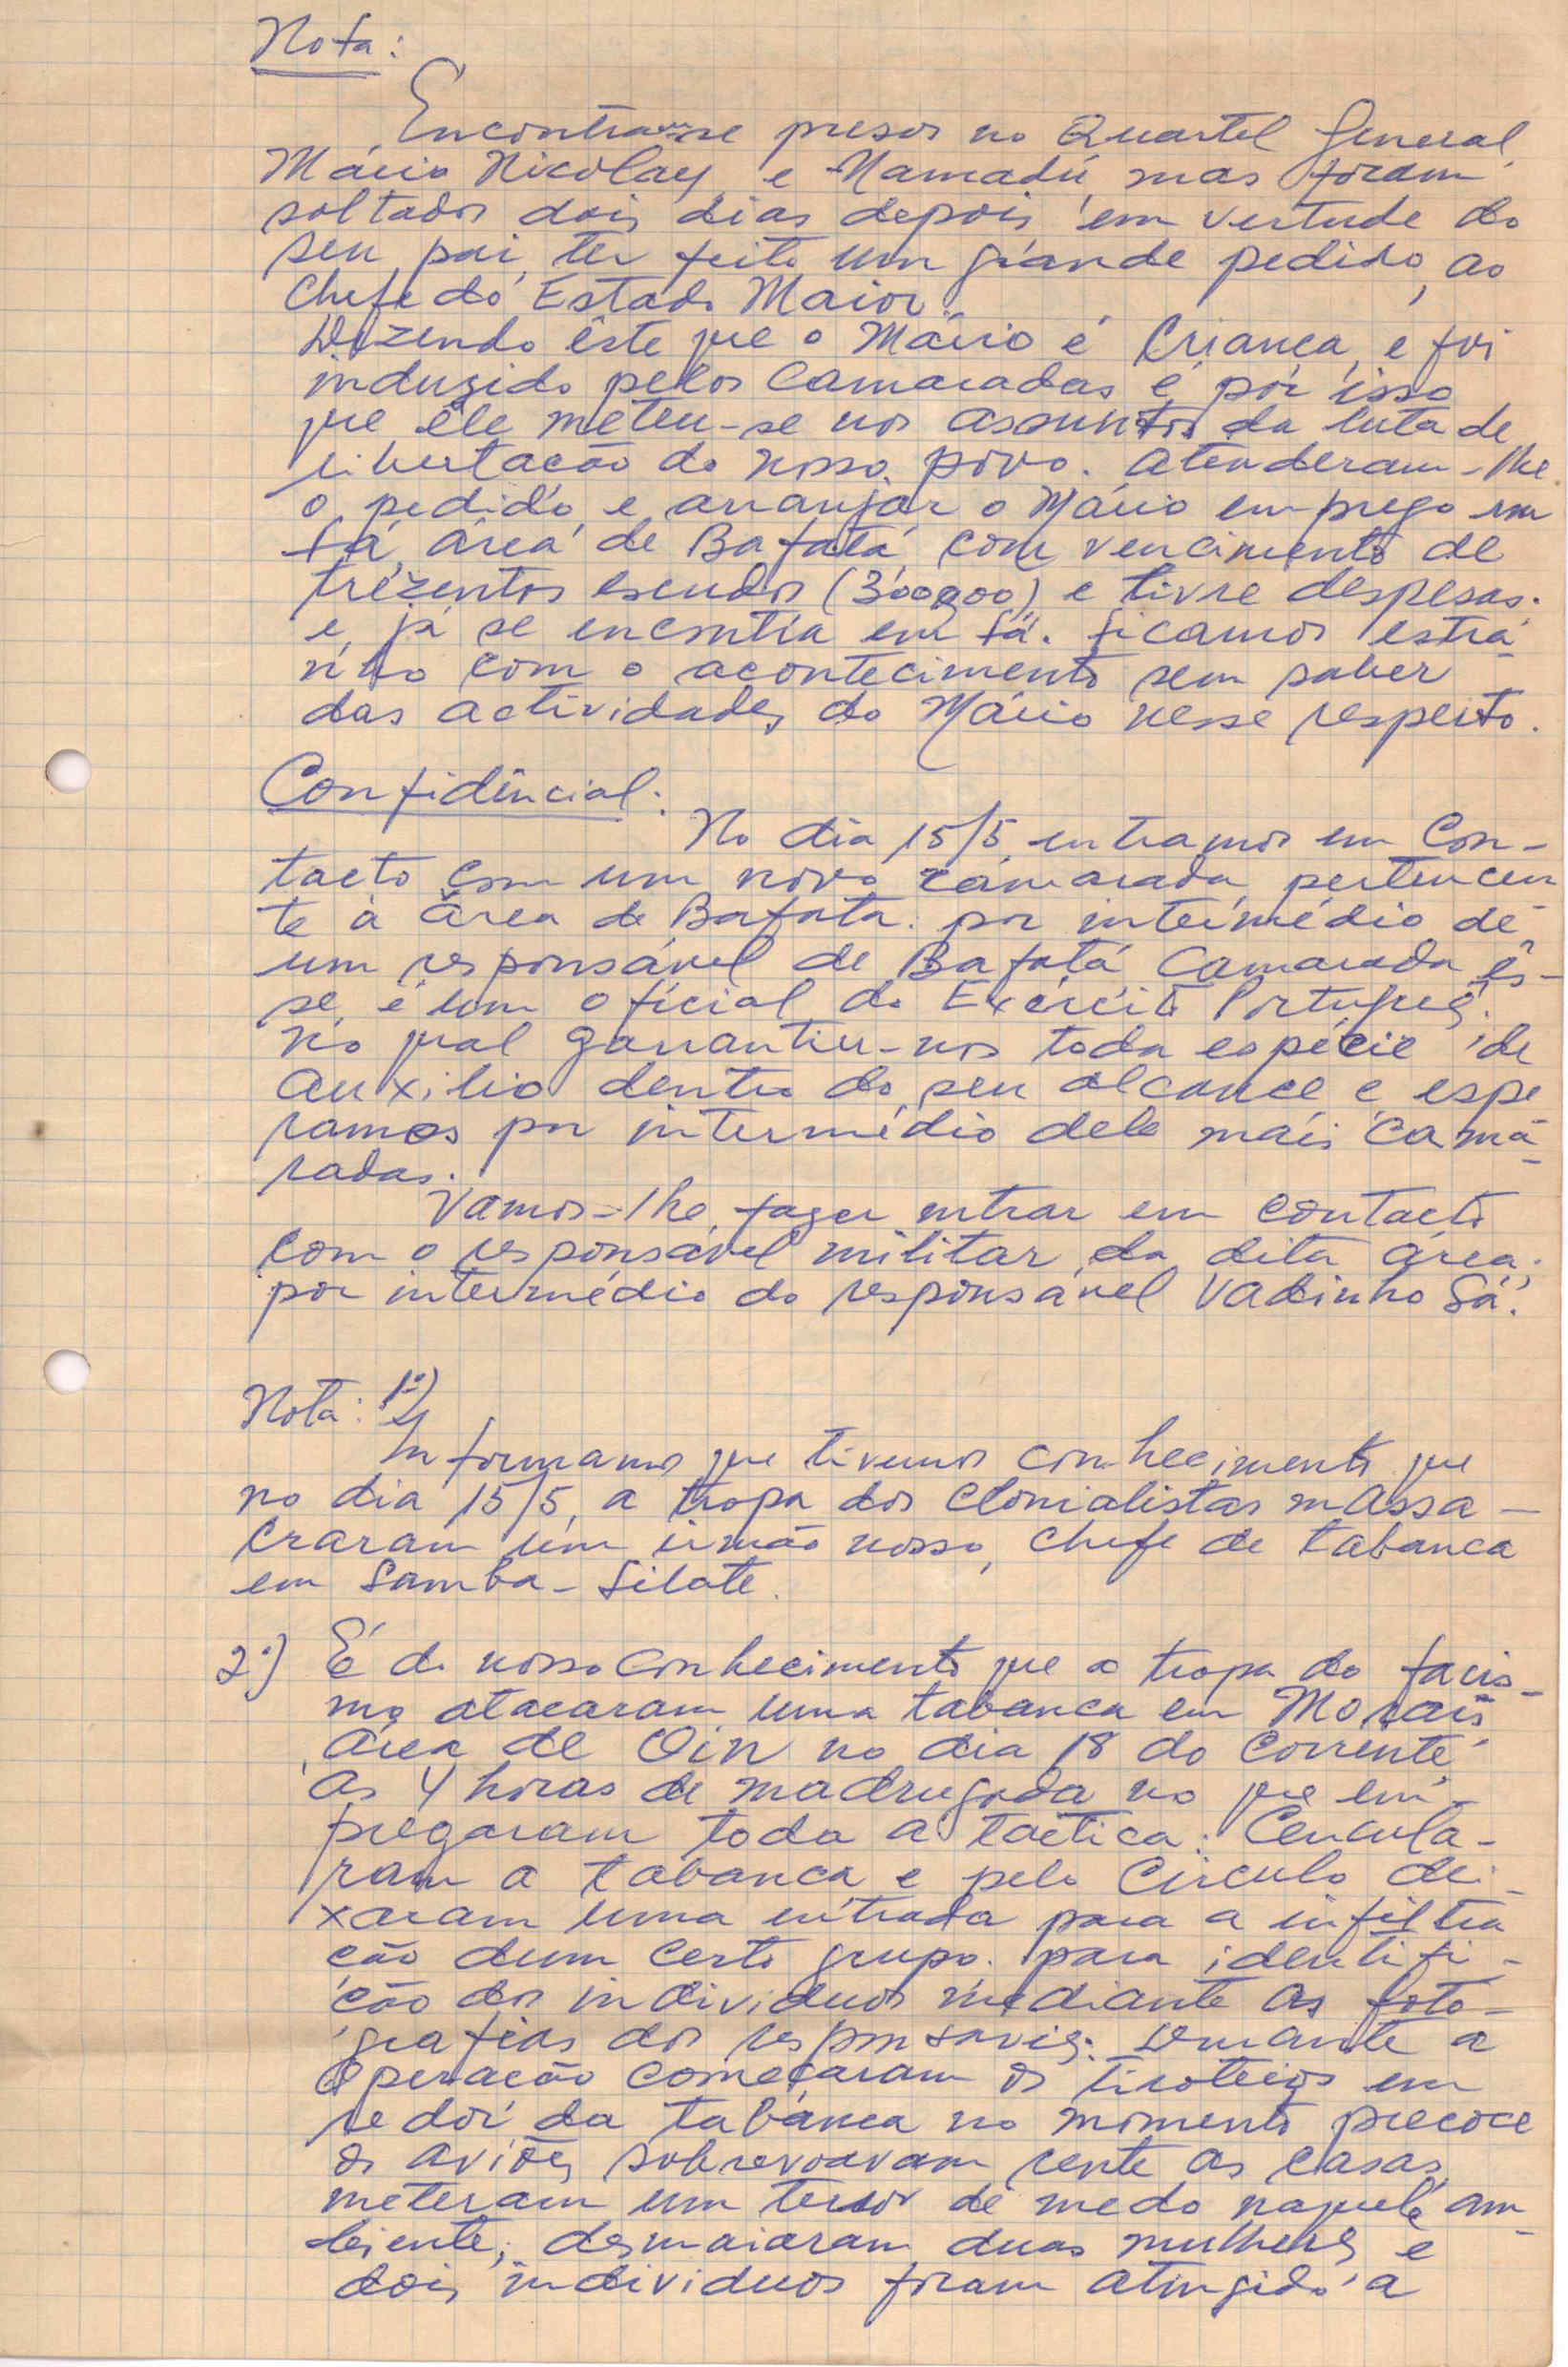 Nota:
Encontram-se presos no Quartel General,
Mário Nicolay, e Mamadú, mas foram
soltados dois dias depois em vertude do
seu pai ter feito um grande pedido, ao
Chefe do Estado Maior.
Dizendo êste que o Mário é Criança, e foi
induzido pelos Camaradas e por isso
que êle meteu-se nos assuntos da luta de
libertação do nosso povo. Atenderam-lhe
o pedido e arranjar o Mário emprego em
Fá, área de Bafatá com vencimento de
trezentos escudos (300$00) e livre despesas.
e, já se encontra em Fá. Ficamos estrá-
nho com o acontecimento sem saber
das actividades do Mário nesse respeito.
Confidêncial:
No dia 15/5 entramos em Con-
tacto com um novo camarada pertencen
te à Área de Bafata. por intermédio de
um responsável de Bafatá Camarada ês-
se, é um oficial do Exército Português.
no qual garrantiu-nos toda espécie de
auxilio dentro do seu alcance e espe
ramos por intermédio dele mais cama-
radas.
Vamos-lhe fazer entrar em contacto
com o responsável militar da dita área.
por intermédio do responsável Vadinho Sá.
Nota: 1º)
Informamos que tivemos conhecimento que
no dia 15/5, a tropa dos clonialistas massa-
craram um irmão nosso, chefe de tabanca
em Samba-Silate.
2º) É do nosso conhecimento que a tropa do facis-
mo atacaram uma tabanca em Morais
Área de Oin no dia 18 do corrente
às 4 horas de madrugada no que em-
pregaram toda a táctica. Cercula-
ram a tabanca e pelo Circulo dei-
xaram uma entrada para a infiltra
ção dum certo grupo. para identifi-
ção dos individuos mediante as foto-
grafias dos responsavis. Durante a
Operação começaram os tiroteios em
redor da tabanca no momento precoce
os aviões sobrevoavam rente as casas
meteram um terror de medo naquele am-
biente, desmaiaram duas mulheres e
dois individuos foram atingido a